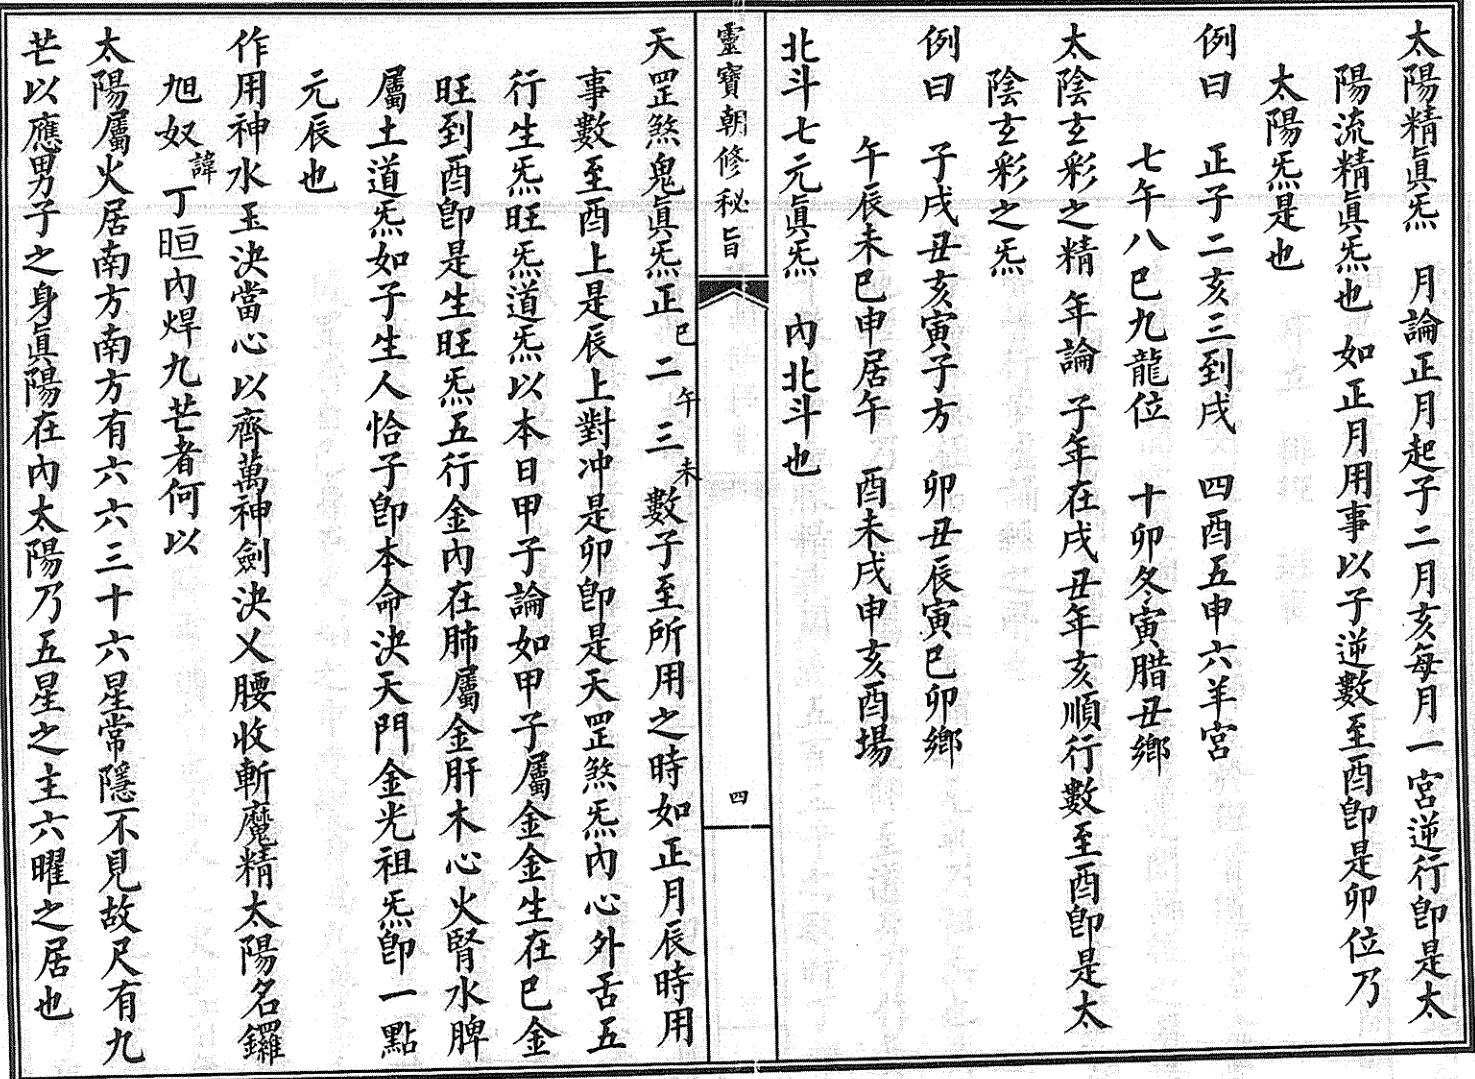 太陽精眞炁　月論正月起子二月亥每月一宮逆行卽是太
陽流精眞炁也　如正月用事以子逆數至酉卽是卯位乃
太陽炁是也
例曰　正子二亥三到戌　四酉五申六羊宮
七午八巳九龍位　十卯冬寅腊丑鄉
太陰玄彩之精　年論　子年在戌丑年亥順行數至酉卽是太
陰玄彩之炁
例曰　子戌丑亥寅子方　卯丑辰寅巳卯鄉
午辰未巳申居午　酉未戌申亥酉場
北斗七元眞炁　內北斗也
靈寶朝修秘旨
四
天罡煞鬼眞炁正巳二午三未數子至所用之時如正月辰時用
事數至酉上是辰上對冲是卯卽是天罡煞炁內心外舌五
行生炁旺炁道炁以本日甲子論如甲子屬金金生在巳金
旺到酉卽是生旺炁五行金內在肺屬金肝木心火腎水脾
屬土道炁如子生人恰子卽本命決天門金光祖炁卽一點
元辰也
作用神水玉決當心以齊萬神劍決乂腰收斬魔精太陽名鑼
旭奴諱丁晅內焊九芒者何以
太陽屬火居南方南方有六六三十六星常隱不見故尺有九
芒以應男子之身眞陽在內太陽乃五星之主六曜之居也